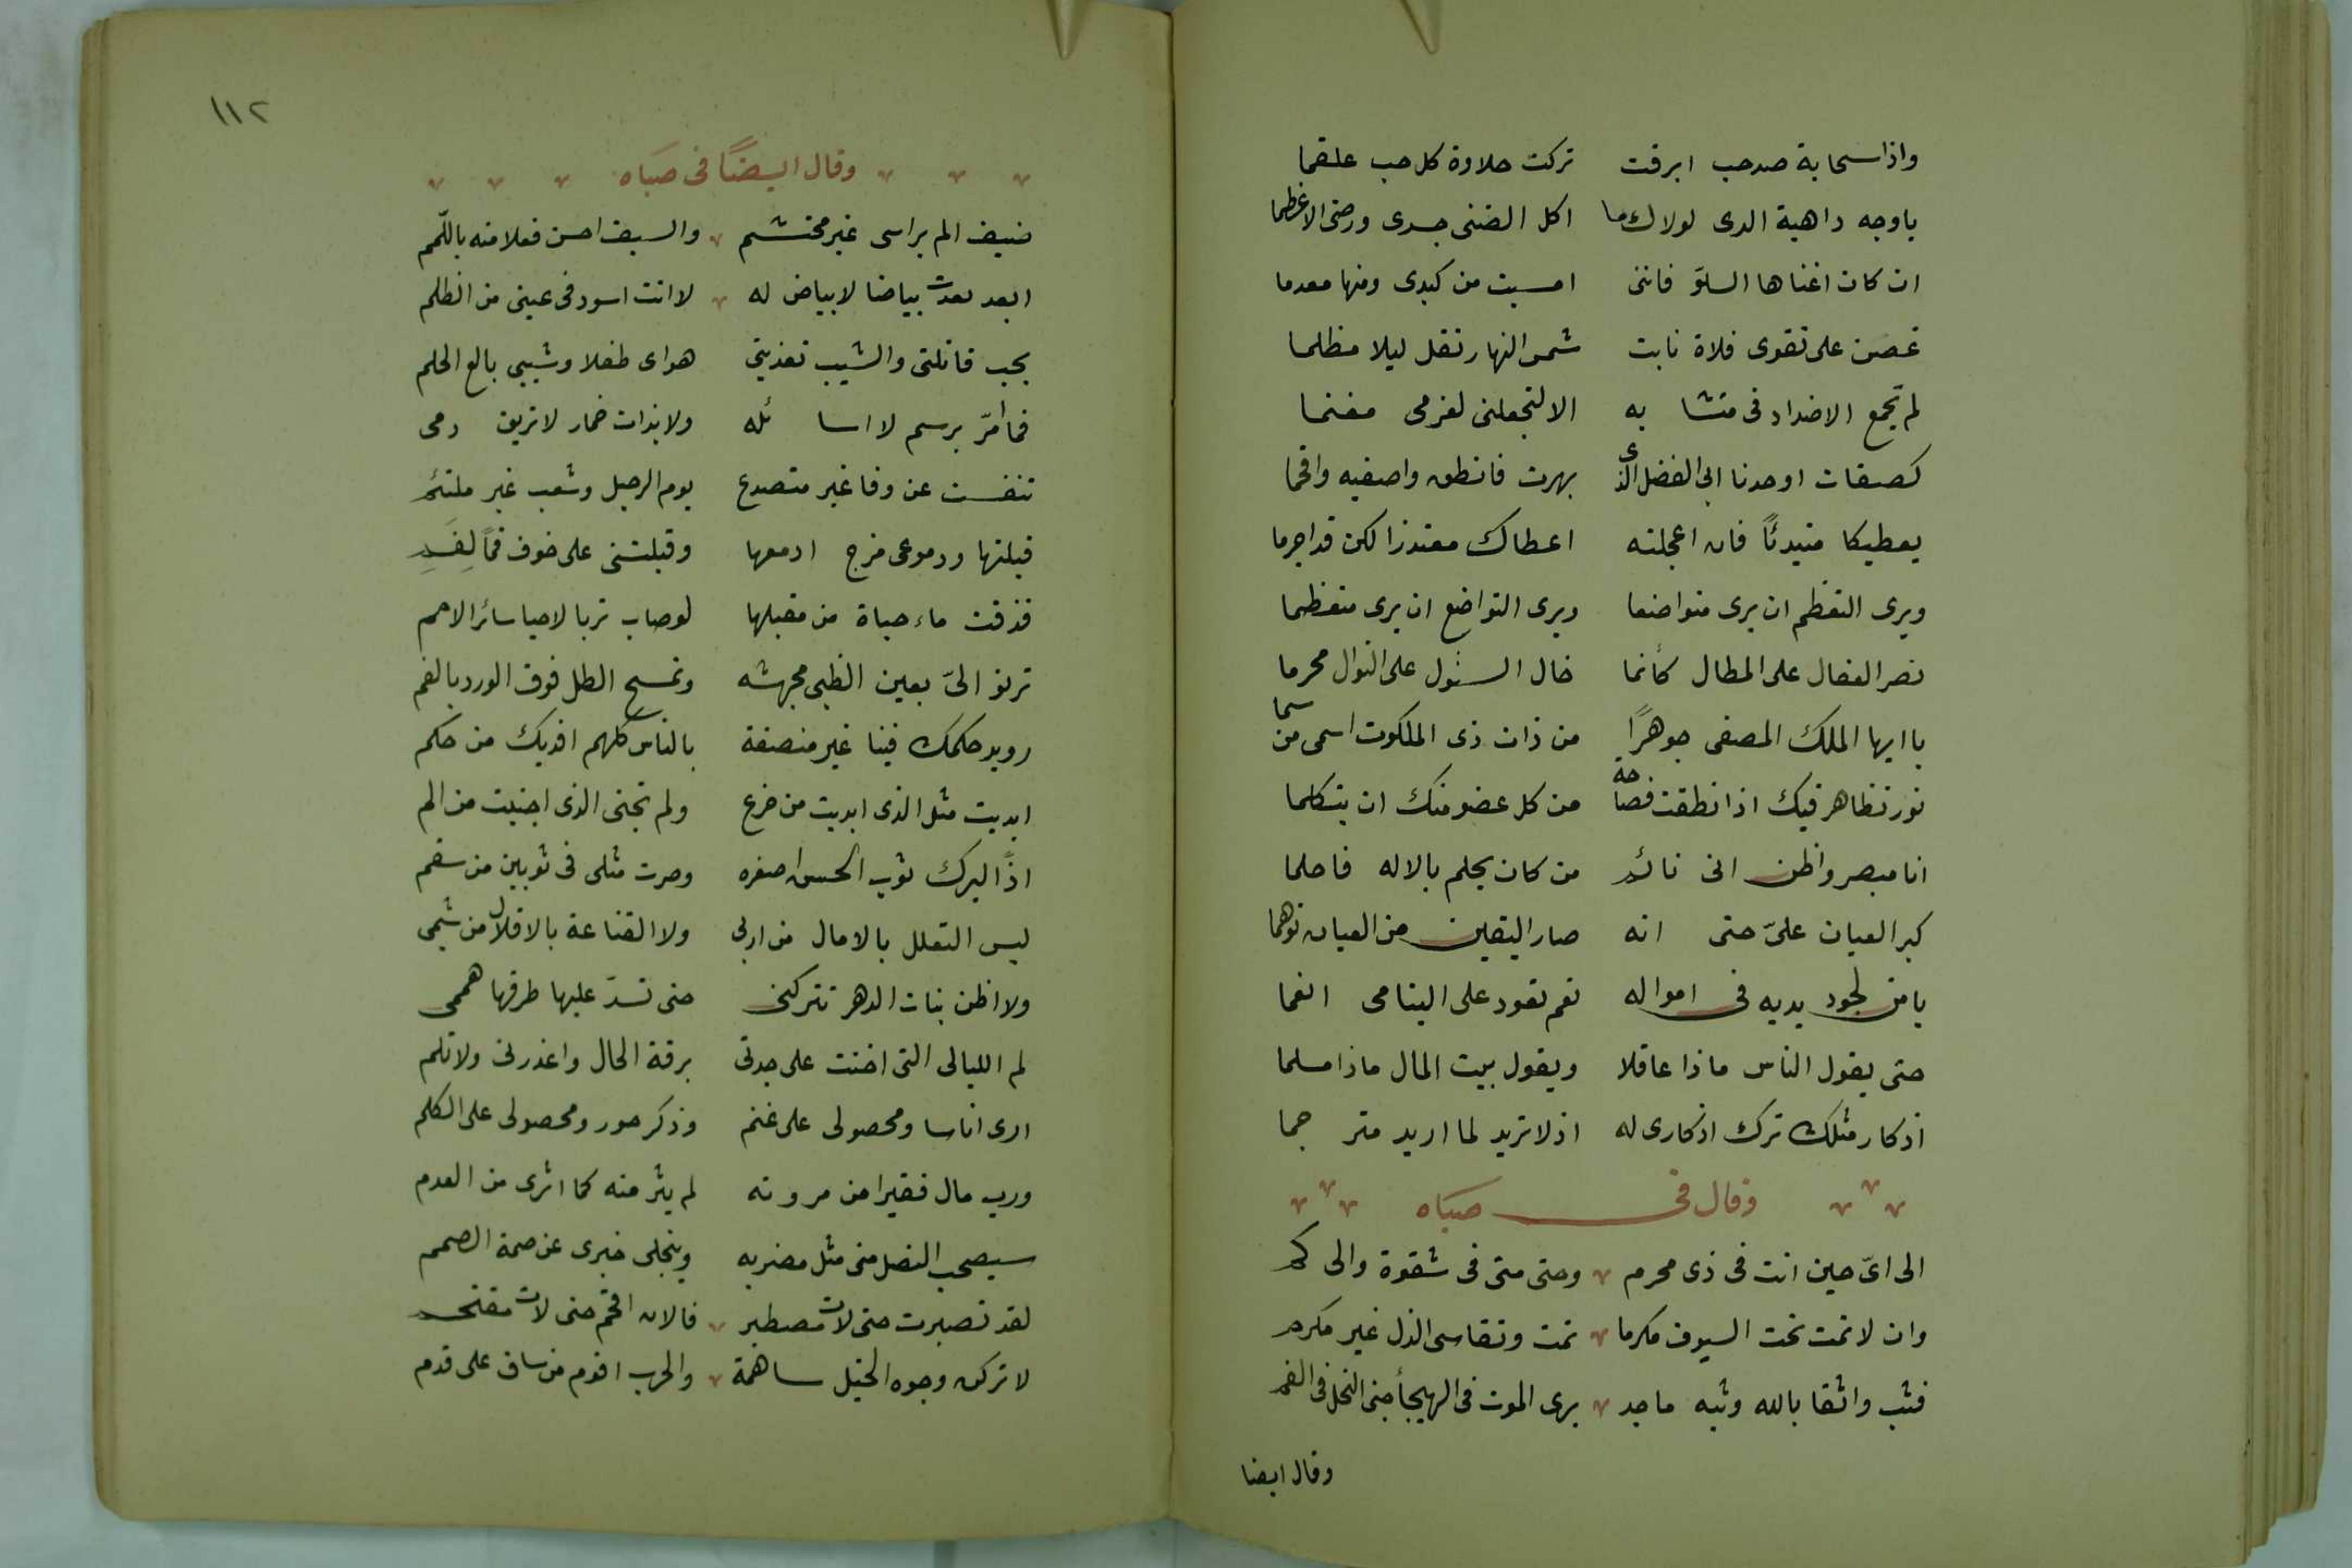 واذا سحابة صد حب ابرقت تركت حلاوة كل حب علقما
ياوجه داهية الدى لولاك ما اكل الضنى جسدى ورضى الاعظما
ان كان اغناها السلوّ فاننى امسيت من كبدى ومنها معدما
غصن على نقوى فلاة نابت شمس النهار تقل ليلا مظلما
لم تجمع الاضداد فى متشا به الا لتجعلنى لغرمى مغنما
كصفات اوحدنا ابى الفضل الذى بهرت فانطق واصفيه وافحما
يعطيكا مبتدئاً فان اعجلته اعطاك معتذرا لكن قد اجرما
ويرى التعظم ان يرى متواضعا ويرى التواضع ان يرى متعظما
نصر الفعال على المطال كأنما خال السئول على النوال محرما
يا ايها الملك المصفى جوهرًا من ذات ذى الملكوت اسمى من سما
نور تظاهر فيك اذا نطقت فصاحة من كل عضو منك ان يتكلما
انا مبصر واظن انى نائم من كان يحلم بالاله فاحلما
كبر العيان علىّ حتى انه صار اليقين من العيان توهما
يا من لجود يديه فى امواله نقم تعود على اليتامى انعما
حتى يقول الناس ماذا عاقلا ويقول بيت المال ماذا مسلما
اذكار مثلك ترك اذكارى له اذ لا تريد لما اريد متر جما
وقال فى صباه
الى اىّ حين انت فى ذى محرم وحتى متى فى شقوة والى كم
وان لا تمت تحت السيوف مكرما تمت وتقاسى الذل غير مكرم
فثب واثقا بالله وثبه ماجد يرى الموت فى الهيجأ جنى النحل فى الفم
وقال ايضا
١١٢
وقال ايضًا فى صَباه
ضيف الم براسى غير محتشم والسيف احسن فعلا منه باللّمم
ابعد بعدت بياضا لابياض له لانت اسود فى عينى من الظلم
بحب قاتلتى والشيب تغذيتى هواى طفلا وشيبى بالغ الحلم
فما امرّ برسم لا اسا ئله ولا بذات خمار لا تريق دمى
تنفست عن وفا غير متصدع يوم الرحيل وشعب غير ملتئم
قبلتها ودموعى مزج ادمعها وقبلتنى على خوف فمًا لِفَمِ
فذقت ماء حياة من مقبلها لوصاب تربا لاحيا سائر الامم
ترنو الىّ بعين الظبى مجهشه وتمسح الطل فوق الورد بالعنم
رويد حكمك فينا غير منصفة بالناس كلهم افديك من حكم
ابديت مثل الذى ابديت من جزع ولم تجنى الذى اجنيت من الم
اذًا لبزك ثوب الحسن اصغره وصرت مثلى فى ثوبين من سقم
ليس التعلل بالامال من اربى ولا القناعة بالاقلال من شيمى
ولا اظن بنات الدهر تتركنى حتى تسدّ عليها طرقها هممى
لم الليالى التى اخنت على جدتى برقة الحال واعذرنى ولا تلم
ارى اناسا ومحصولى على غنم وذكر جود ومحصولى على الكلم
ورب مال فقيرا من مروته لم يثر منه كما اثرى من العدم
سيصحب النصل منى مثل مضربه وينجلى خبرى عن صمة الصمم
لقد تصبرت حتى لات مصطبر فالان اقحم حتى لات مقتحم
لا تركن وجوه الخيل ساهمة والحرب اقوم من ساق على قدم